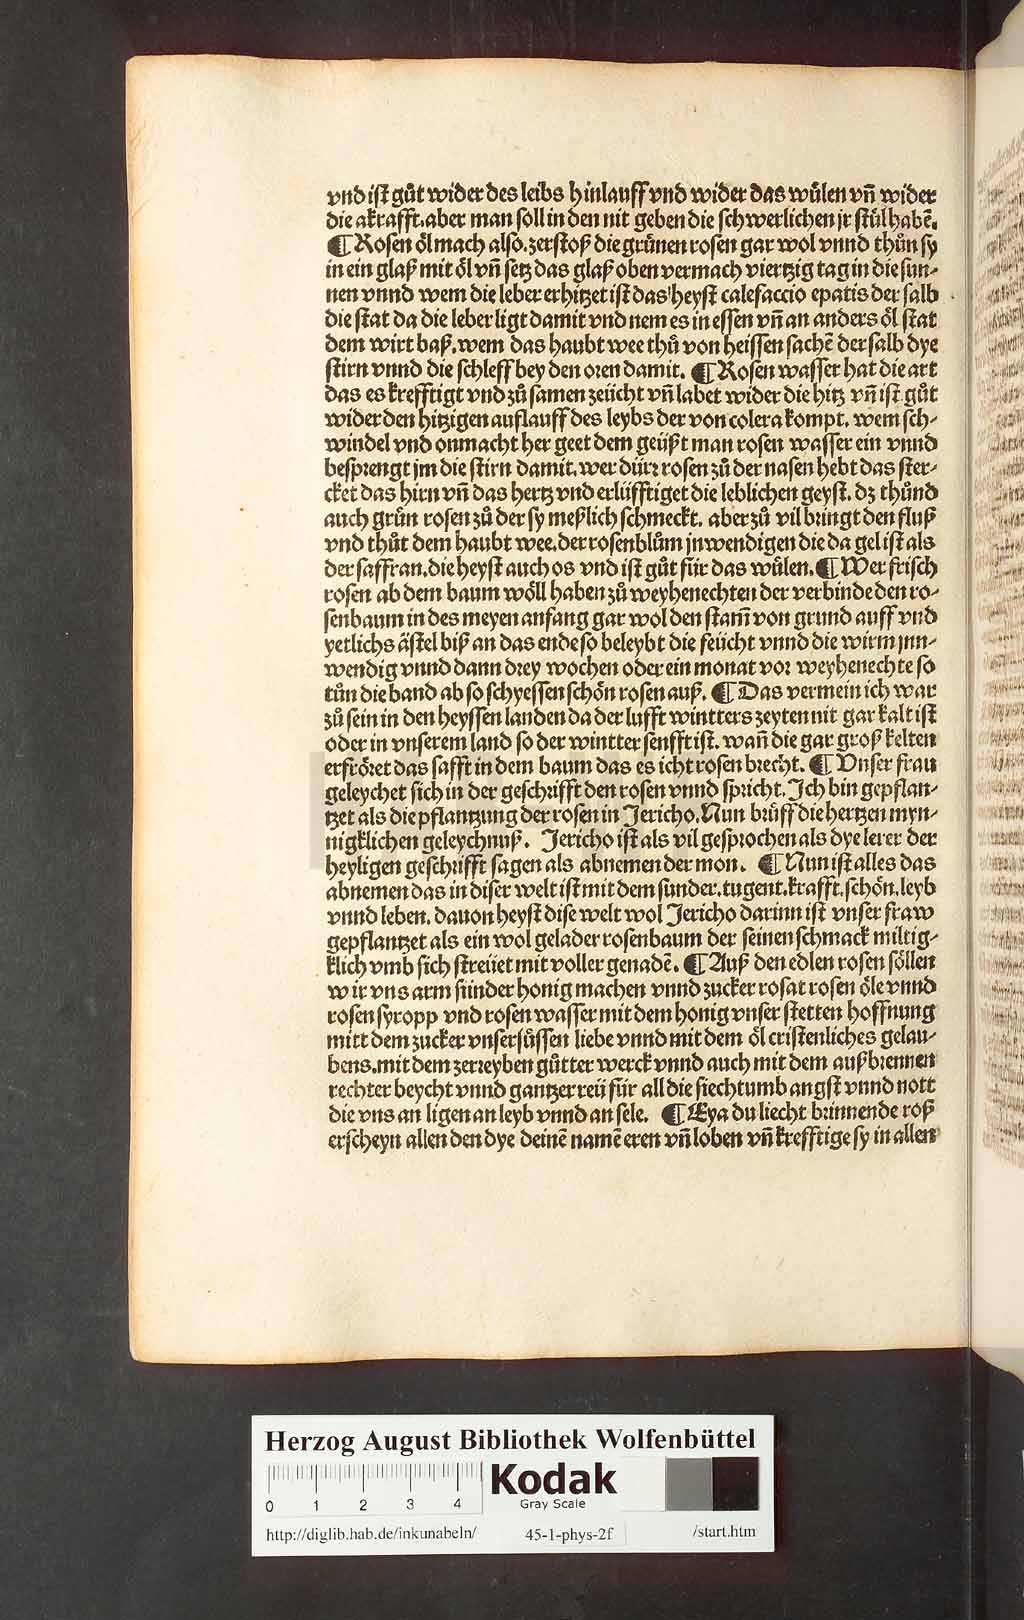 vnd ist gůt wider des leibs hinlauff vnd wider das wůlen vñ wider
die akrafft. aber man soll in den nit geben die schwerlichen jr stůl habē.
¶ Rosen öl mach also. zerstoß die grůnen rosen gar wol vnnd thůn sy
in ein glaß mit öl vñ setz das glaß oben vermach viertzig tag in die sun⸗
nen vnnd wem die leber erhitzet ist das heyst calefaccio epatis der salb
die stat da die leber ligt damit vnd nem es in essen vñ an anders öl stat
dem wirt baß. wem das haubt wee thů von heissen sachē der salb dye
stirn vnnd die schleff bey den oren damit. ¶ Rosen wasser hat die art
das es krefftigt vnd zů samen zeücht vñ labet wider die hitz vñ ist gůt
wider den hitzigen auflauff des leybs der von colera kompt. wem sch⸗
windel vnd onmacht her geet dem geüßt man rosen wasser ein vnnd
besprengt jm die stirn damit. wer dürr rosen zů der nasen hebt das ster⸗
cket das hirn vñ das hertz vnd erlüfftiget die leblichen geyst. dz thůnd
auch grůn rosen zů der sy meßlich schmeckt. aber zů vil bringt den fluß
vnd thůt dem haubt wee. der rosenblům jnwendigen die da gel ist als
der saffran. die heyst auch os vnd ist gůt für das wůlen. ¶ Wer frisch
rosen ab dem baum wöll haben zů weyhenechten der verbinde den ro⸗
senbaum in des meyen anfang gar wol den stam̃ von grund auff vnd
yetlichs ästel biß an das ende so beleybt die feücht vnnd die wirm jnn⸗
wendig vnnd dann drey wochen oder ein monat vor weyhenechte so
tůn die band ab so schyessen schön rosen auß. ¶ Das vermein ich war
zů sein in den heyssen landen da der lufft wintters zeyten nit gar kalt ist
oder in vnserem land so der wintter senfft ist. wañ die gar groß kelten
erfröret das safft in dem baum das es icht rosen brecht. ¶ Vnser frau
geleychet sich in der geschrifft den rosen vnnd spricht. Ich bin gepflan⸗
tzet als die pflantzung der rosen in Jericho. Nun brüff die hertzen myn⸗
nigklichen geleychnuß. Jericho ist als vil gesprochen als dye lerer der
heyligen geschrifft sagen als abnemen der mon. ¶ Nun ist alles das
abnemen das in diser welt ist mit dem sunder. tugent. krafft. schön. leyb
vnnd leben. dauon heyst dise welt wol Jericho darinn ist vnser fraw
gepflantzet als ein wol gelader rosenbaum der seinen schmack miltig⸗
klich vmb sich streüet mit voller genadē. ¶ Auß den edlen rosen söllen
wir vns arm sünder honig machen vnnd zucker rosat rosen öle vnnd
rosen syropp vnd rosen wasser mit dem honig vnser stetten hoffnung
mitt dem zucker vnser süssen liebe vnnd mit dem öl cristenliches gelau⸗
bens. mit dem zerreyben gůtter werck vnnd auch mit dem außbrennen
rechter beycht vnnd gantzer reü für all die siechtumb angst vnnd nott
die vns an ligen an leyb vnnd an sele. ¶ Eya du liecht brinnende roß
erscheyn allen den dye deinē namē eren vñ loben vñ krefftige sy in allen
Herzog August Bibliothek Wolfenbüttel
0 1 2 3 4
Kodak
Gray Scale
http://diglib.hab.de/inkunabeln/ 45-1-phys-2f /start.htm